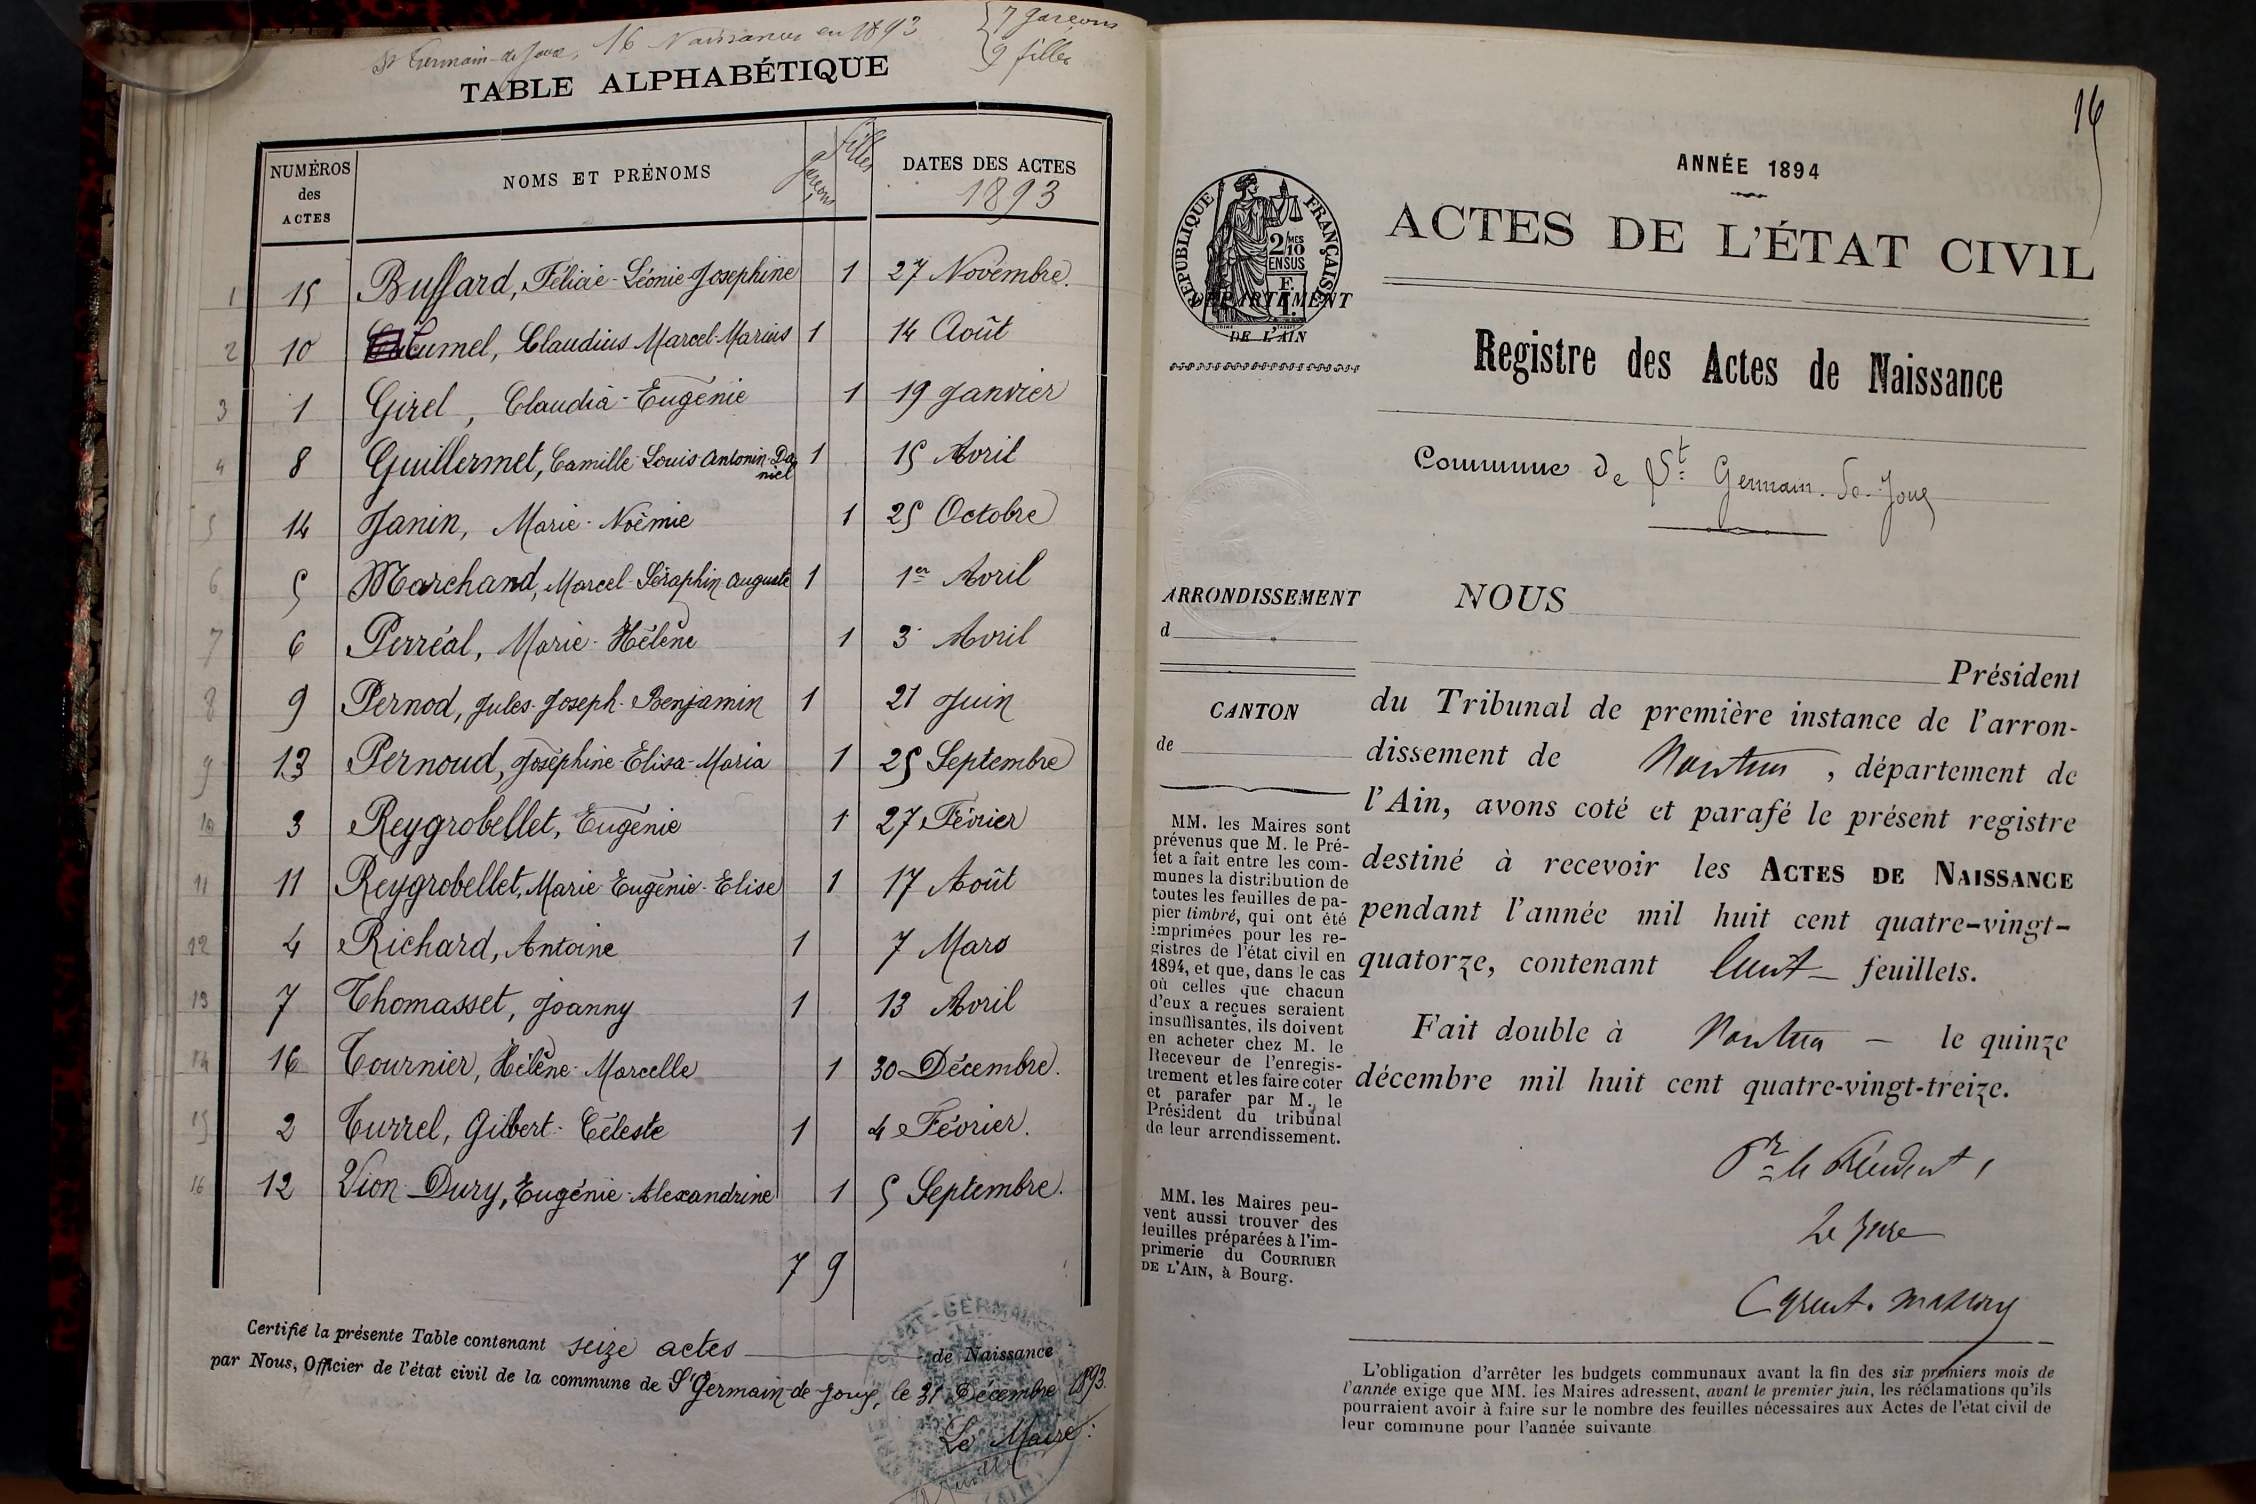 St Germain-de-Joux, 16 Naissances en 1893
7 garçons
9 filles
TABLE ALPHABÉTIQUE
NUMÉROS
des
ACTES
NOMS ET PRÉNOMS
garçons
filles
DATES DES ACTES
1893
1 15 Buffard, Félicie-Léonie-Josephine 1 27 Novembre.
2 10 Cumel, Claudius Marcel-Marius 1 14 Août
3 1 Girel, Claudia-Eugénie 1 19 Janvier
4 8 Guillermet, Camille-Louis-Antonin-Da 1 15 Avril
niel
5 14 Janin, Marie-Noémie 1 25 Octobre
6 5 Marchand, Marcel-Séraphin-Auguste 1 1er Avril
7 6 Perréal, Marie-Hélène 1 3 Avril
8 9 Pernod, Jules-Joseph-Benjamin 1 21 Juin
9 13 Pernoud, Joséphine-Elisa-Maria 1 25 Septembre
10 3 Reygrobellet, Eugénie 1 27 Février
11 11 Reygrobellet, Marie-Eugénie-Elise 1 17 Août
12 4 Richard, Antoine 1 7 Mars
13 7 Thomasset, Joanny 1 13 Avril
14 16 Tournier, Hélène-Marcelle 1 30 Décembre.
15 2 Turrel, Gilbert-Céleste 1 4 Février.
16 12 Vion-Dury, Eugénie-Alexandrine 1 5 Septembre.
7 9
Certifié la présente Table contenant seize actes de Naissance
par Nous, Officier de l'état civil de la commune de St Germain-de-Joux, le 31 Décembre 1893.
Le Maire:
16
ANNÉE 1894
ACTES DE L'ÉTAT CIVIL
RÉPUBLIQUE FRANÇAISE
2/10MES
EN SUS
DÉPARTEMENT
DE L'AIN
Registre des Actes de Naissance
Commune de St Germain-de-Joux
ARRONDISSEMENT
d
CANTON
de
MM. les Maires sont
prévenus que M. le Pré-
fet a fait entre les com-
munes la distribution de
toutes les feuilles de pa-
pier timbré, qui ont été
imprimées pour les re-
gistres de l'état civil en
1894, et que, dans le cas
où celles que chacun
d'eux a reçues seraient
insuffisantes, ils doivent
en acheter chez M. le
Receveur de l'enregis-
trement et les faire coter
et parafer par M. le
Président du tribunal
de leur arrondissement.
MM. les Maires peu-
vent aussi trouver des
feuilles préparées à l'im-
primerie du COURRIER
DE L'AIN, à Bourg.
NOUS
Président
du Tribunal de première instance de l'arron-
dissement de Nantua, département de
l'Ain, avons coté et parafé le présent registre
destiné à recevoir les ACTES DE NAISSANCE
pendant l'année mil huit cent quatre-vingt-
quatorze, contenant huit feuillets.
Fait double à Nantua — le quinze
décembre mil huit cent quatre-vingt-treize.
Pr le Président,
Le Juge
L'obligation d'arrêter les budgets communaux avant la fin des six premiers mois de
l'année exige que MM. les Maires adressent, avant le premier juin, les réclamations qu'ils
pourraient avoir à faire sur le nombre des feuilles nécessaires aux Actes de l'état civil de
leur commune pour l'année suivante